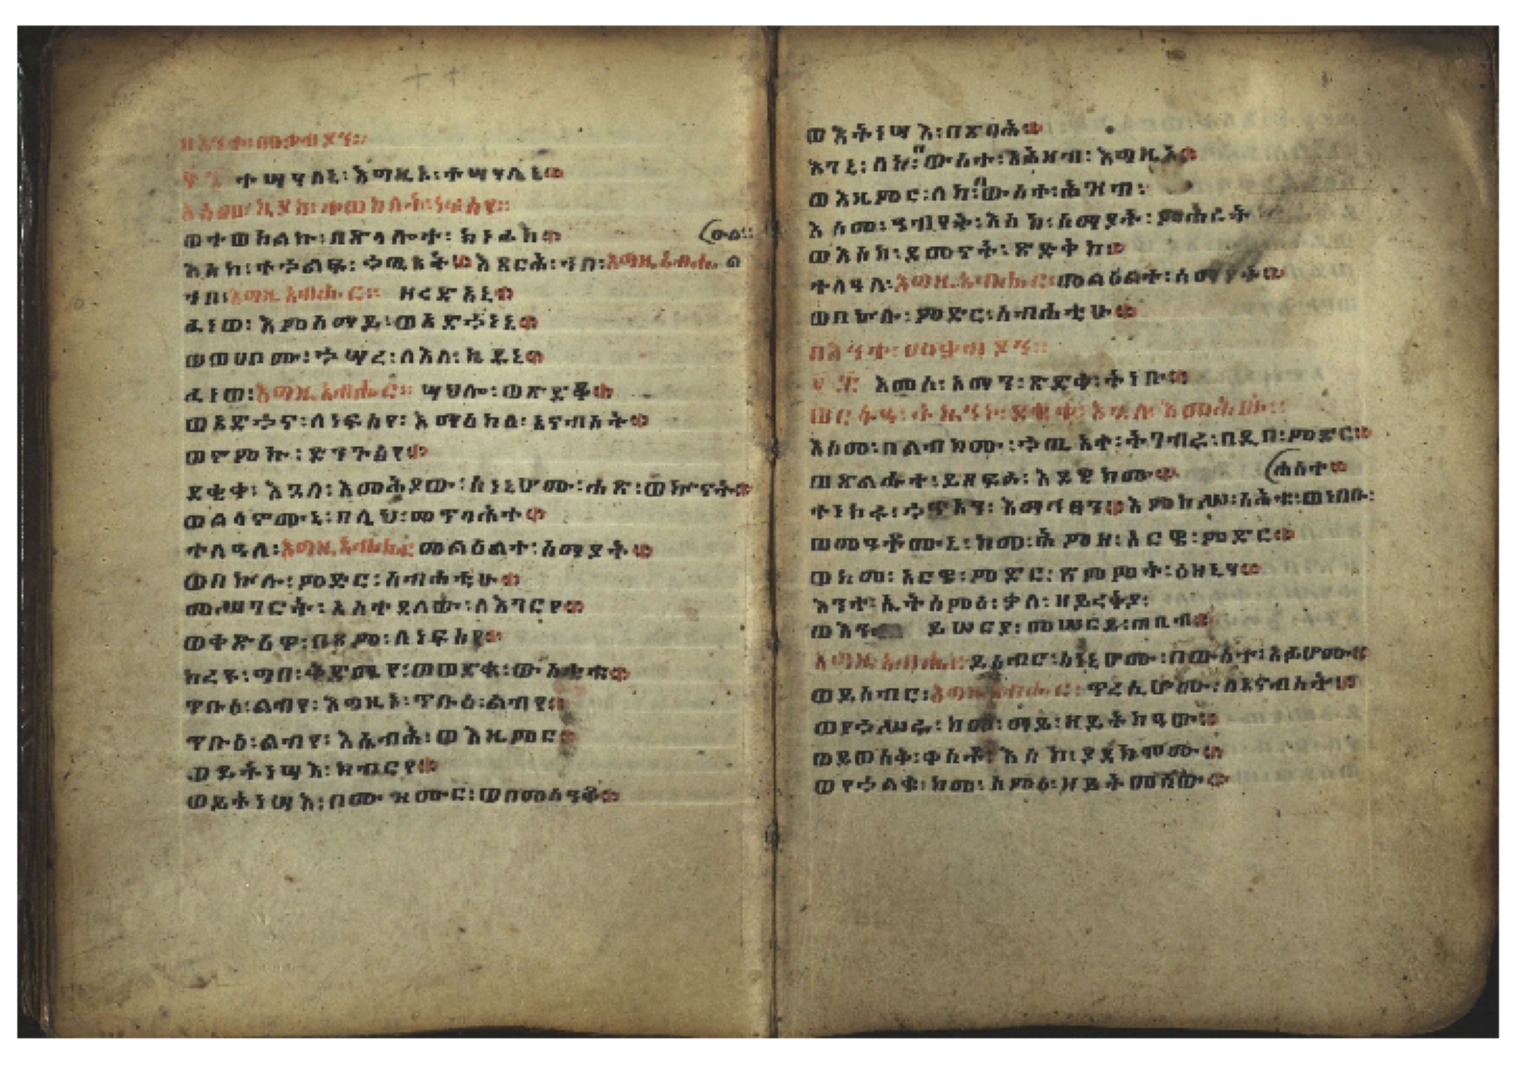 በእንተ፡ሙቃብያን።
፶፮ ተሣሃለኒ፡እግዚኦ፡ተሣሃለኒ።
እስመ፡ኪያከ፡ተወከለት፡ነፍስየ።
ወተወከልኩ፡በጽላሎተ፡ክነፊከ።
እስከ፡ተኃልፍ፡ኃጢአት።እጸርሕ፡ኀበ፡እግዚአብሔር፡ልዑል።
ኀበ፡እግዚአብሔር። ዘረድአኒ።
ፈነወ፡እምሰማይ፡ወአድኃነኒ።
ወወሀቦሙ፡ኃሣረ፡ለእለ፡ኬዱኒ።
ፈነወ፡እግዚአብሔር። ሣህሎ፡ወጽድቆ።
ወአድኃና፡ለነፍስየ፡እማዕከለ፡አናብስት።
ወኖምኩ፡ድንጉፅየ።
ደቂቀ፡እጓለ፡እመሕያው፡ስነኒሆሙ፡ሐጽ፡ወኵናት።
ወልሳኖሙኒ፡በሊህ፡መጥባሕት።
ተለዓለ፡እግዚአብሔር፡መልዕልተ፡ሰማያት።
ወበኵሉ፡ምድር፡ስብሐቲሁ።
መሣገርት፡አስተደለው፡ለእገርየ።
ወቀጽዕዋ፡በጾም፡ለነፍስየ።
ከረዩ፡ግበ፡ቅድሜየ፡ወወድቁ፡ውስቴቱ።
ጥቡዕ፡ልብየ፡እግዚኦ፡ጥቡዕ፡ልብየ።
ጥቡዕ፡ልብየ፡እሴብሕ፡ወእዜምር።
ወይትነሣእ፡ክብርየ።
ወይትነሣእ፡በመዝሙር፡ወበመሰንቆ።
ወእትነሣእ፡በጽባሕ።
እገኒ፡ለከ፡በውስተ፡አሕዛብ፡እግዚኦ።
ወእዜምር፡ለከ፡በውስተ፡ሕዝብ፡
እስመ፡ዓብየት፡እስከ፡ሰማያት፡ምሕረት
ወእስከ፡ደመናት፡ጽድቅከ።
ተለዓለ፡እግዚአብሔር፡መልዕልተ፡ሰማያት።
ወበኵሉ፡ምድር፡ስብሐቲሁ።
በእንተ፡ሙቃብያን።
፶፯ እመሰ፡አማን፡ጽድቀ፡ትነቡ።
ወርቱዓ፡ትኴንኑ፡ደቂቀ፡እጓለ፡እመሕያው።
እስመ፡በልብክሙ፡ኃጢአተ፡ትገብሩ፡በዲበ፡ምድር።
ወጽልሑተ፡ይጸፍራ፡እደዊክሙ።
ተነክሩ፡ኃጥኣን፡እማሕፀን።እምከርሡ፡ስሕቱ፡ወነበቡ፡ሐሰተ።
ወመዓቶሙኒ፡ከመ፡ሕምዘ፡አርዌ፡ምድር።
ወከመ፡አርዌ፡ምድር፡ጽምምት፡ዕዘኒሃ።
እንተ፡ኢትሰምዕ፡ቃለ፡ዘይረቅያ፡
ይሠርያ፡መሠርይ፡ጠቢብ።
እግዚአብሔር፡ይሰብር፡ስነኒሆሙ፡በውስተ፡አፉሆሙ።
ወይሰብር፡እግዚአብሔር፡ጥረሲሆሙ፡ለአናብስት።
ወየኃሥሩ፡ከመ፡ማይ፡ዘይትከዓው።
ወይወስቅ፡ቀስቶ፡እስከ፡ያደክሞሙ።
ወየኃልቁ፡ከመ፡ሰምዕ፡ዘይትመሰው።